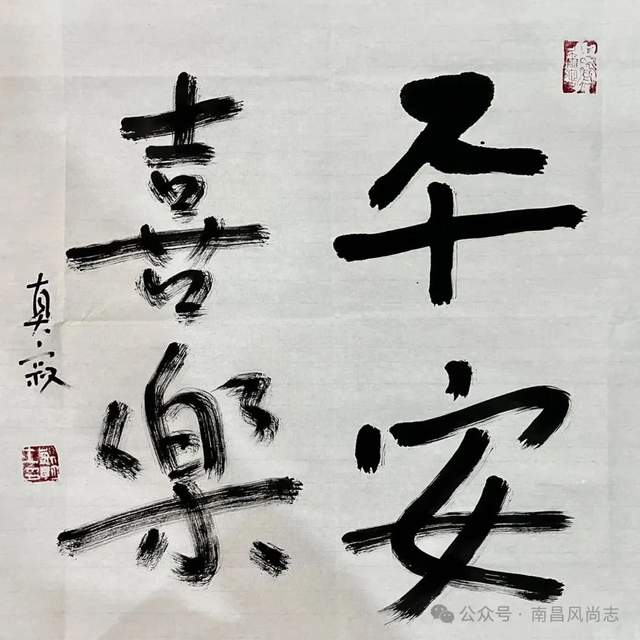 平安
喜樂
真寂
公众号·南昌风尚志